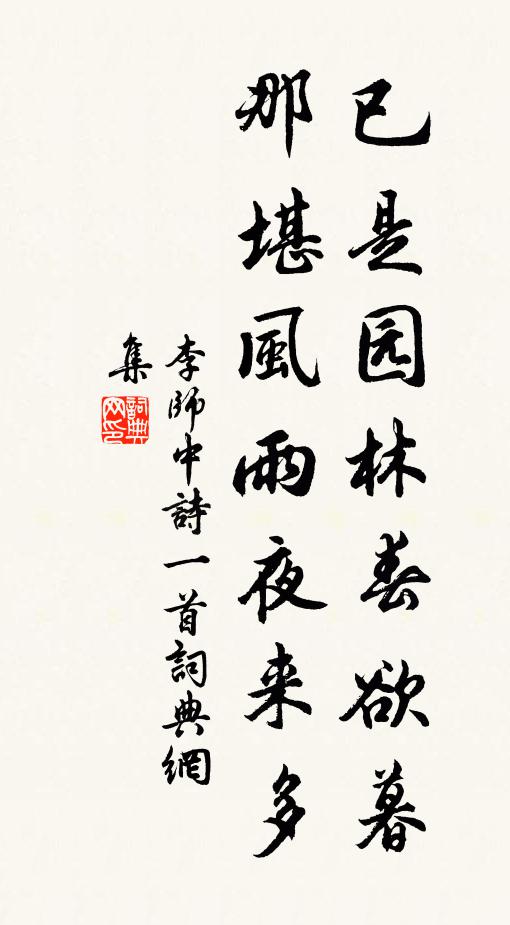 已是园林春欲暮
那堪風雨夜来多
李師中詩一首詞典網
集
詞典
网印